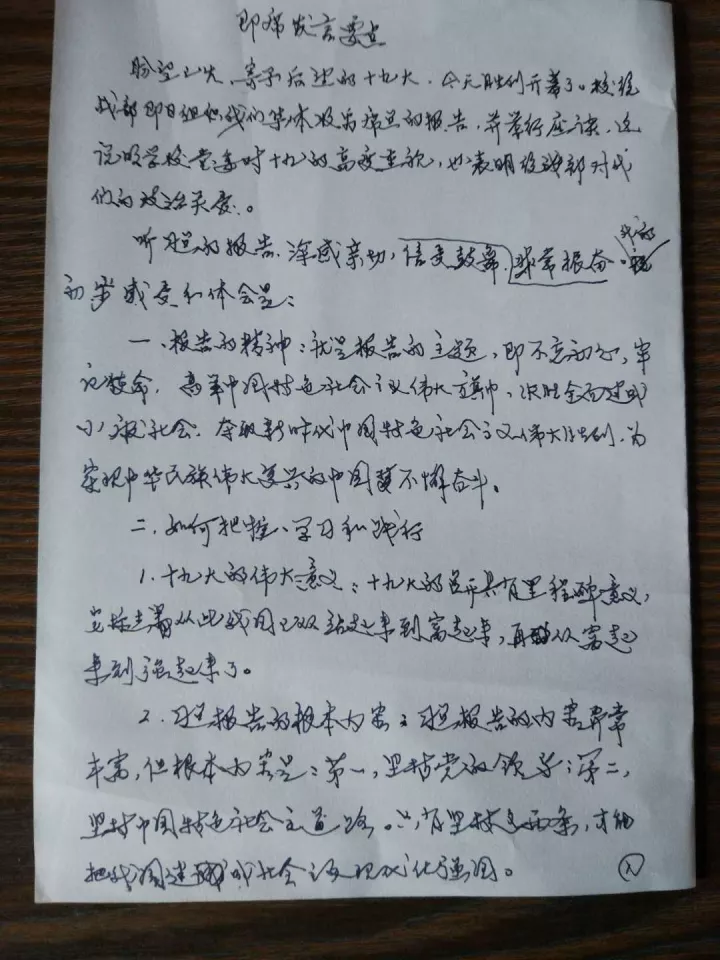 即席发言要点
盼望已久、寄予厚望的十九大，今天胜利开幕了。校统
战部即日组织我们集体收看席旦的报告，并举行座谈，这
说明学校党委对十九大的高度重视，也表明统战部对我
们的政治关爱。
听习旦的报告，深感亲切，倍受鼓舞，非常振奋。我的
初步感受和体会是：
一、报告的精神：就是报告的主题，即不忘初心，牢
记使命，高举中国特色社会主义伟大旗帜，决胜全面建成
小康社会，夺取新时代中国特色社会主义伟大胜利，为
实现中华民族伟大复兴的中国梦不懈奋斗。
二、如何把握、学习和践行
1．十九大的伟大意义：十九大的召开具有里程碑意义，
它标志着从此我国已从站起来到富起来，再从富起
来到强起来了。
2．习旦报告的根本内容：习旦报告的内容异常
丰富，但根本内容是：第一，坚持党的领导；第二，
坚持中国特色社会主义道路。只有坚持这两条，才能
把我国建成社会主义现代化强国。